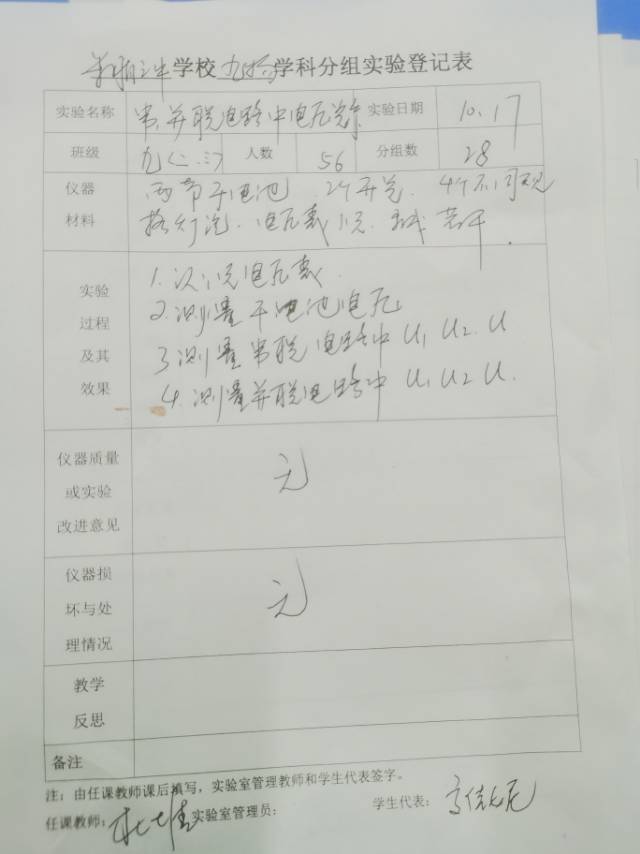 学校 九物 学科分组实验登记表
实验名称 串、并联电路中电压规律 实验日期 10.17
班级 九(二、三) 人数 56 分组数 28
仪器材料 两节干电池 2个开关 4个不同规
格灯泡、电压表1只 导线若干.
实验过程及其效果
1. 认识电压表
2. 测量干电池电压
3 测量串联电路中 U1 U2 U
4. 测量并联电路中 U1 U2 U.
仪器质量或实验改进意见 无
仪器损坏与处理情况 无
教学反思
备注
注：由任课教师课后填写，实验室管理教师和学生代表签字。
任课教师： 实验室管理员： 学生代表：